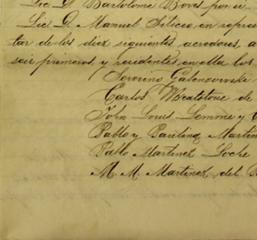 Lic D Bartolomé Boves por si
Lic D. Manuel Siliceo en represen
tar de los diez siguientes acredores, a
ser primeros, y residentes en ella los
Severino
Carlos Wheatstone de
John Louis Lemoine y
Pablo y Paulino Martin
Pablo Martinez Loche
M. M. Martinez del